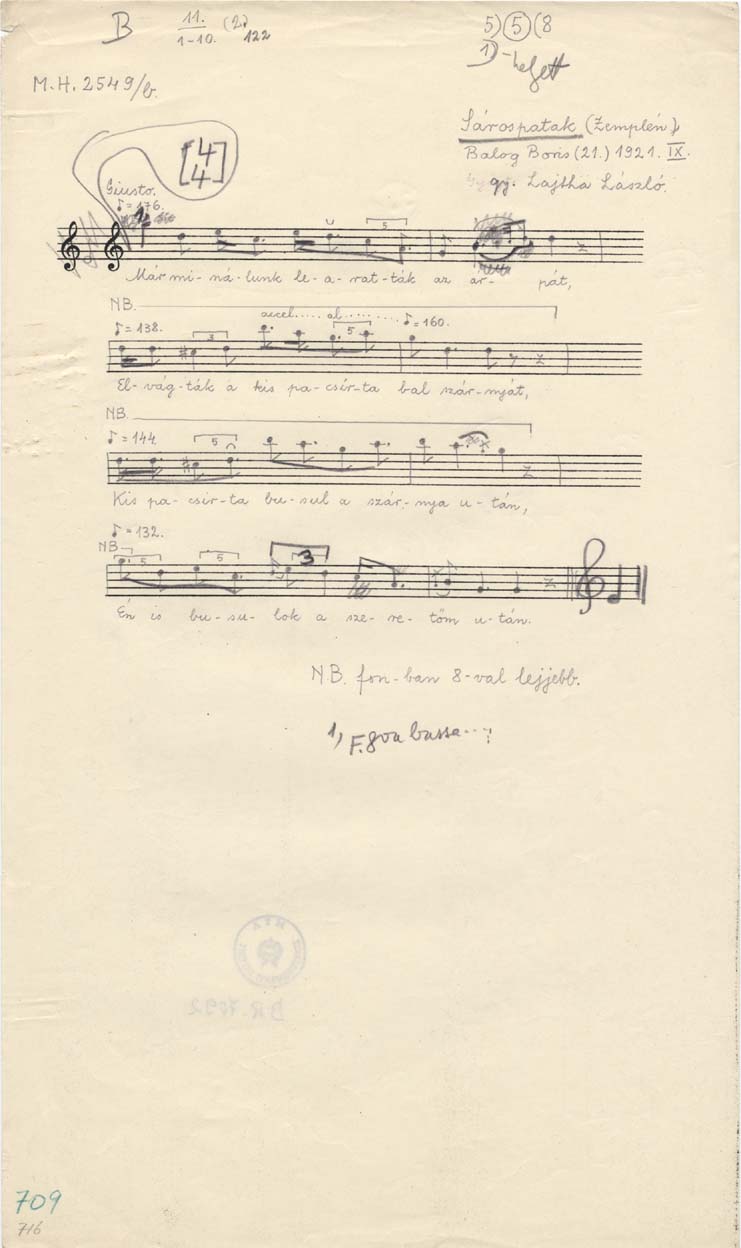 B 11. 1-10. (2.) 122
5) (5) (8
1) -helyett
M.H. 2549/b.
[4 4]
Sárospatak (Zemplén)
Balog Boris (21.) 1921. IX.
gy. Lajtha László.
Giusto.
♪ = 176.
5
Már mi - ná - lunk le - a - rat - ták az ár - pát,
NB.
♪ = 138. 3 accel..... al........ 5 ♪ = 160.
El - vág - ták a kis pa - csír - ta bal szár - nyát,
NB.
♪ = 144. 5
Kis pa - csir - ta bu - sul a szár - nya u - tán,
♪ = 132.
NB
5 5 3
Én is bu - su - lok a sze - re - tőm u - tán.
NB. fon-ban 8-val lejjebb.
1, F. 8va bassa...
B.R. 7092
709
716